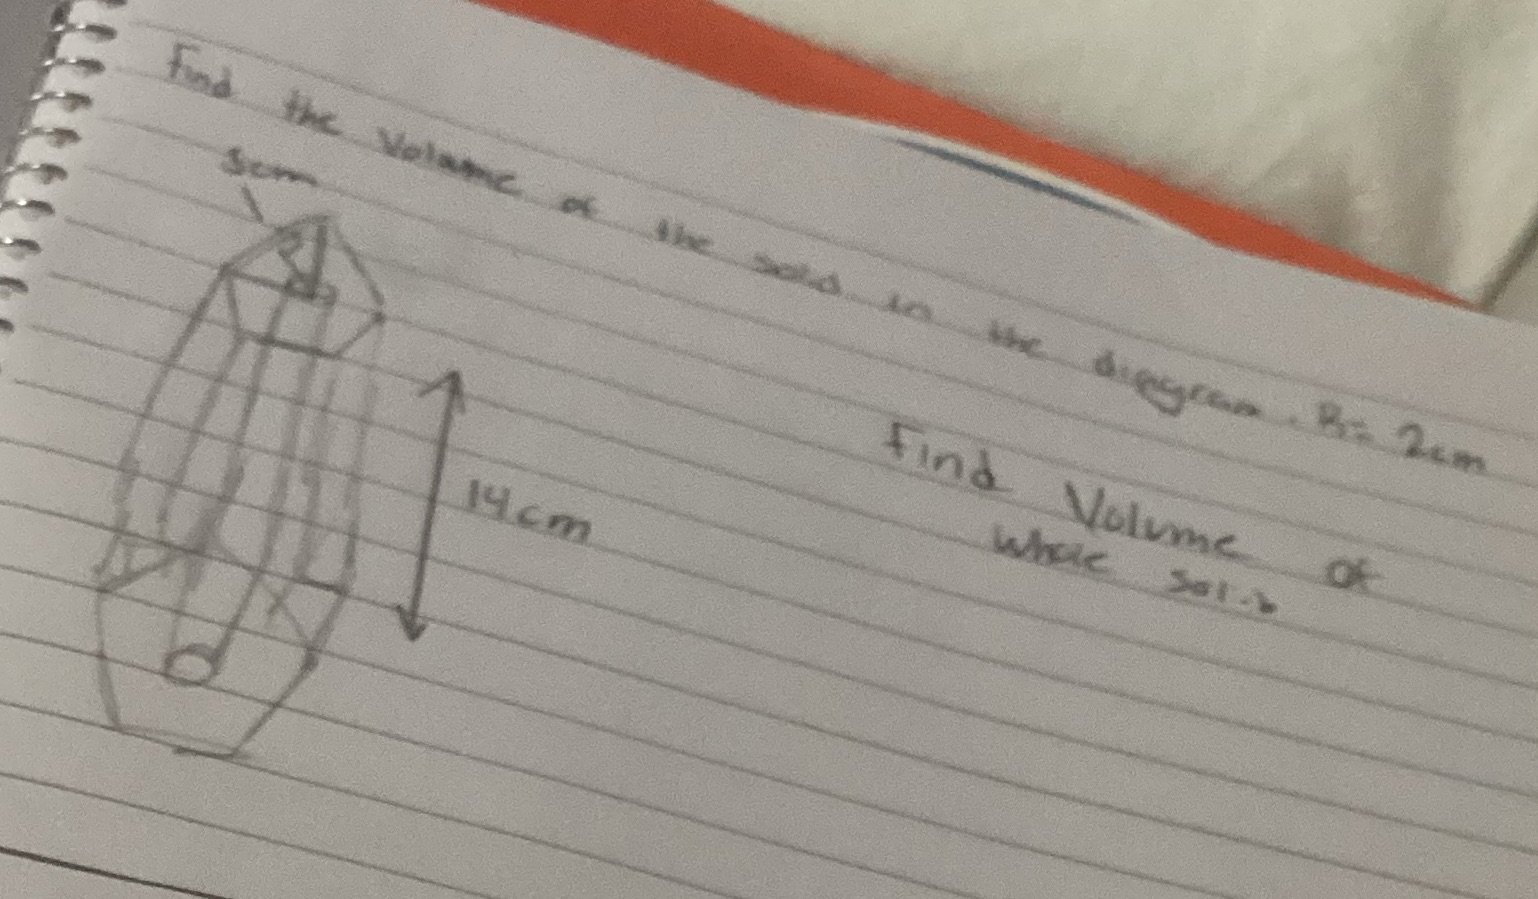 Find the Volume of the solid in the diagram. R= 2cm
5cm
14cm
Find Volume of
whole